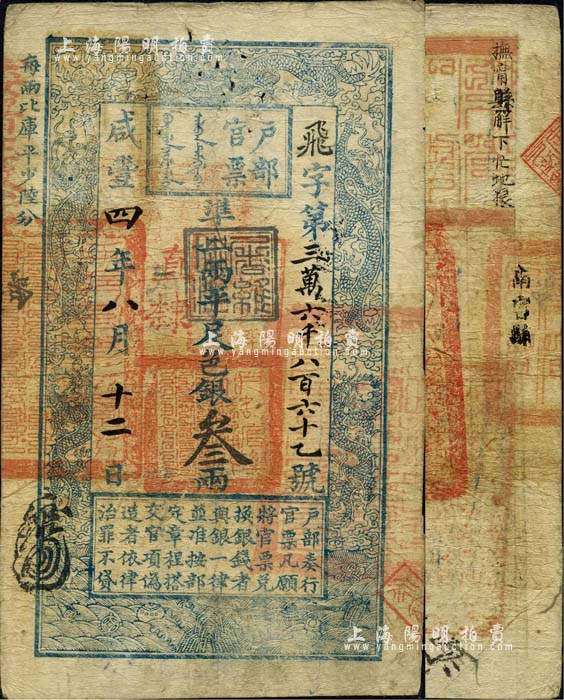 上海陽明拍賣
www.yangmingauction.com
戶部
官票
飛字第三萬六千八百六十乙號
準二兩平足色銀叁兩
咸豐四年八月十二日
每兩比庫平少陸分
戶部奏行
官票凡願
將官票兌
換銀錢者
與銀一律
並准按部
定章程搭
交官項偽
造者依律
治罪不貸
直隸
撫甯縣解下忙地糧
上海陽明拍賣
www.yangmingauction.com
上海陽明拍賣
www.yangmingauction.com
上海陽明拍賣
www.yangmingauction.com